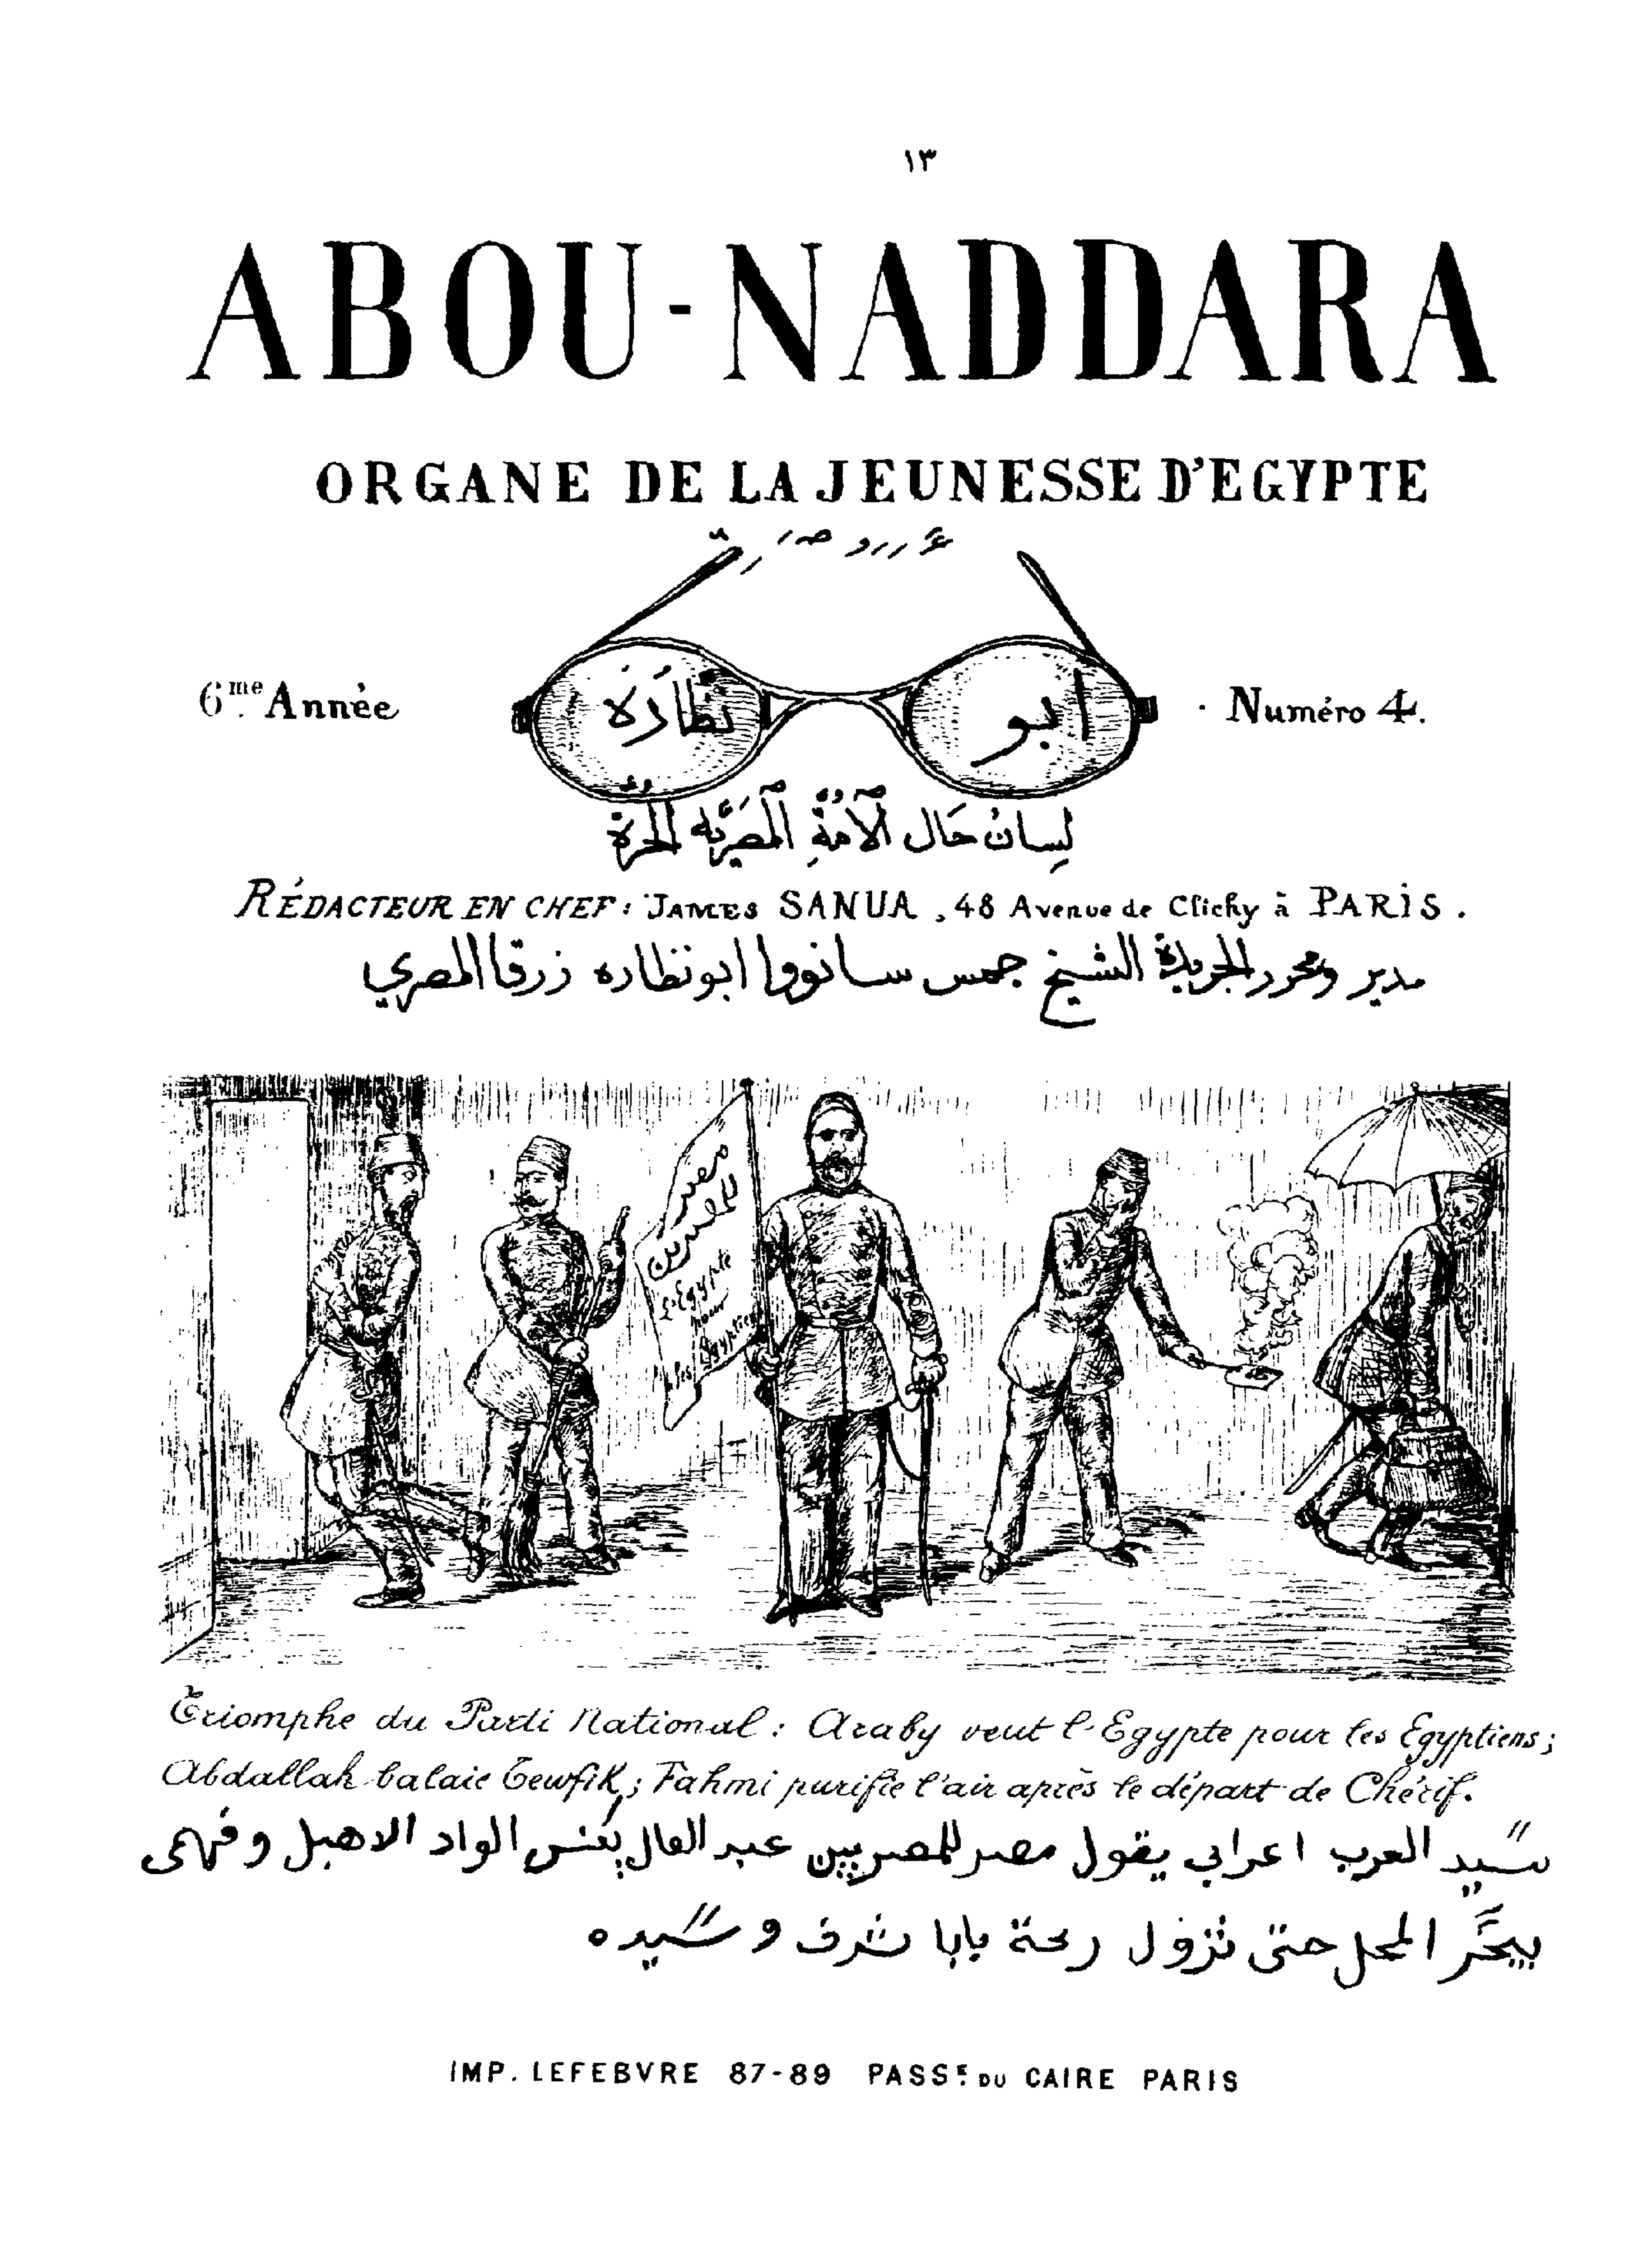 ١٣
ABOU-NADDARA
ORGANE DE LA JEUNESSE D'EGYPTE
6me Année
ابو نظارة
Numéro 4.
لِسان حَال الأُمّةِ المصريّه الحُرّة
RÉDACTEUR EN CHEF: JAMES SANUA, 48 Avenue de Clichy à PARIS.
مدير ومحرر الجريدة الشيخ جمس سانووا ابونظاره زرقا المصري
مصر
للمصريين
L'Egypte
pour
les Egyptiens
Triomphe du Parti National: Araby veut l'Egypte pour les Egyptiens;
Abdallah balaie Tewfik; Fahmi purifie l'air après le départ de Chérif.
سيد العرب اعرابي يقول مصر للمصريين عبد العال يكنس الواد الاهبل وفهمي
يبخّر المحل حتى تزول ريحة بابا شرف وسيده
IMP. LEFEBVRE 87-89 PASSE DU CAIRE PARIS